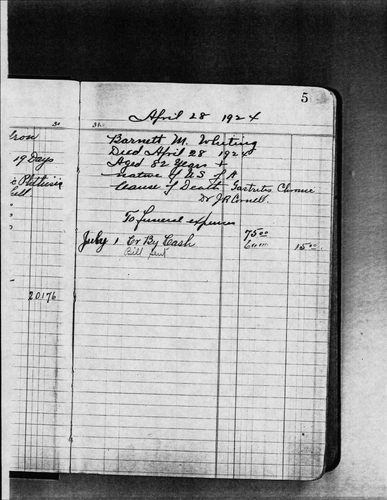 5
April 28 1924
Barnett M. Whiting
Died April 28 1924
Aged 82 Years +
native of U S of A
Cause of Death Gastritis Chronic
Dr J R Cornell.
To Funeral expenses 75 00
July 1 Cr By Cash 60 00 15 00
Bill Sent
19 Days
20176